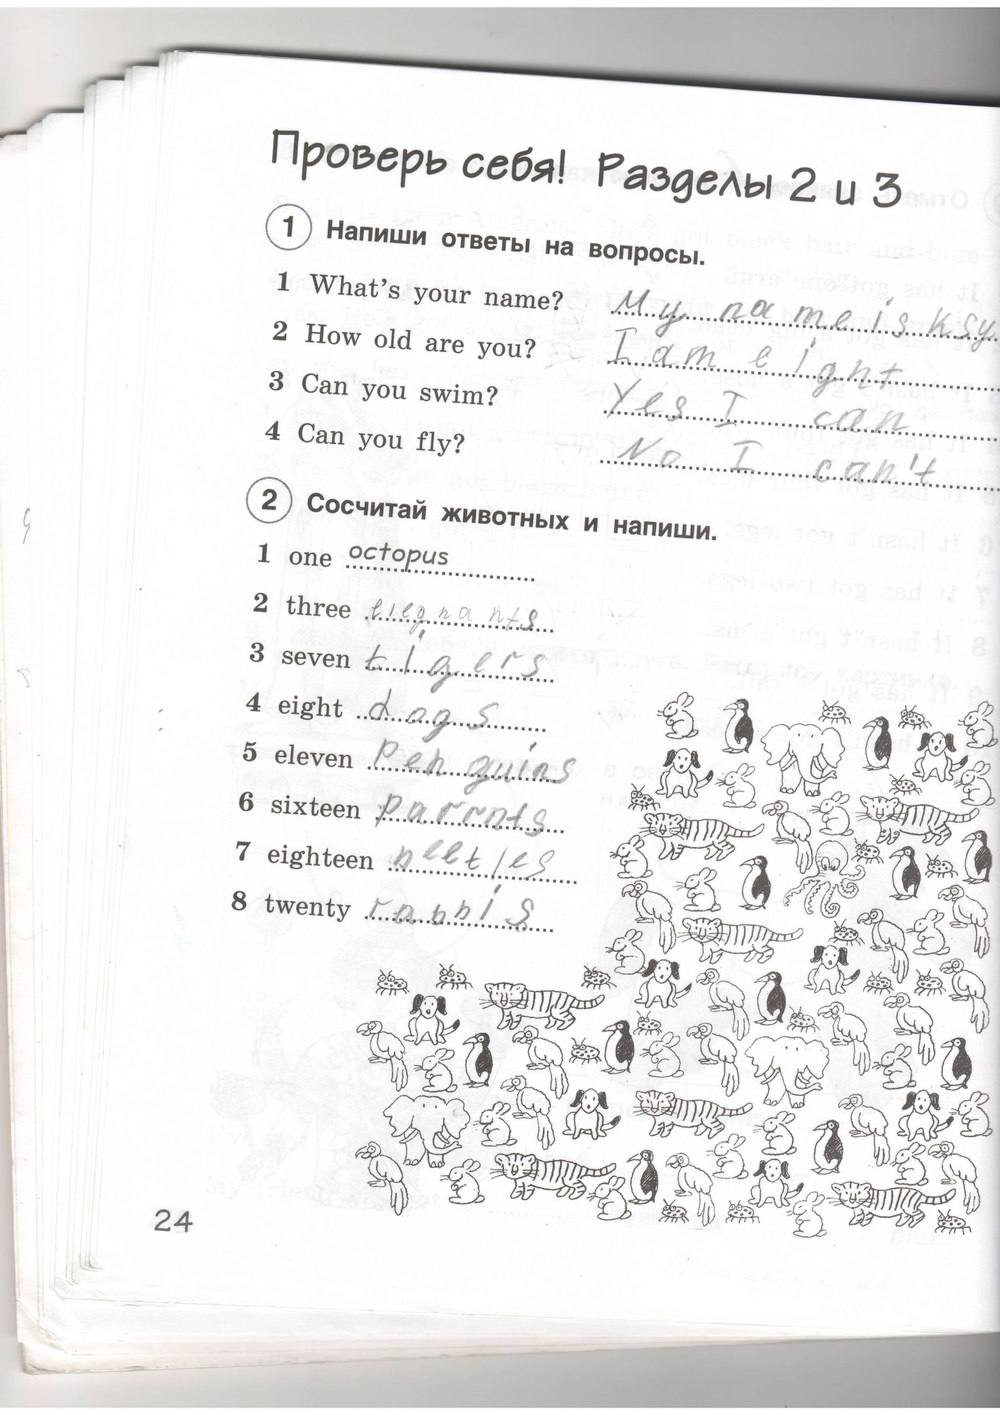 Проверь себя! Разделы 2 и 3
1 Напиши ответы на вопросы.
1 What's your name? My name is Ksy
2 How old are you? I am eight
3 Can you swim? Yes I can
4 Can you fly? No I can't
2 Сосчитай животных и напиши.
1 one octopus
2 three
3 seven tigers
4 eight dogs
5 eleven Penguins
6 sixteen parrots
7 eighteen
8 twenty
24